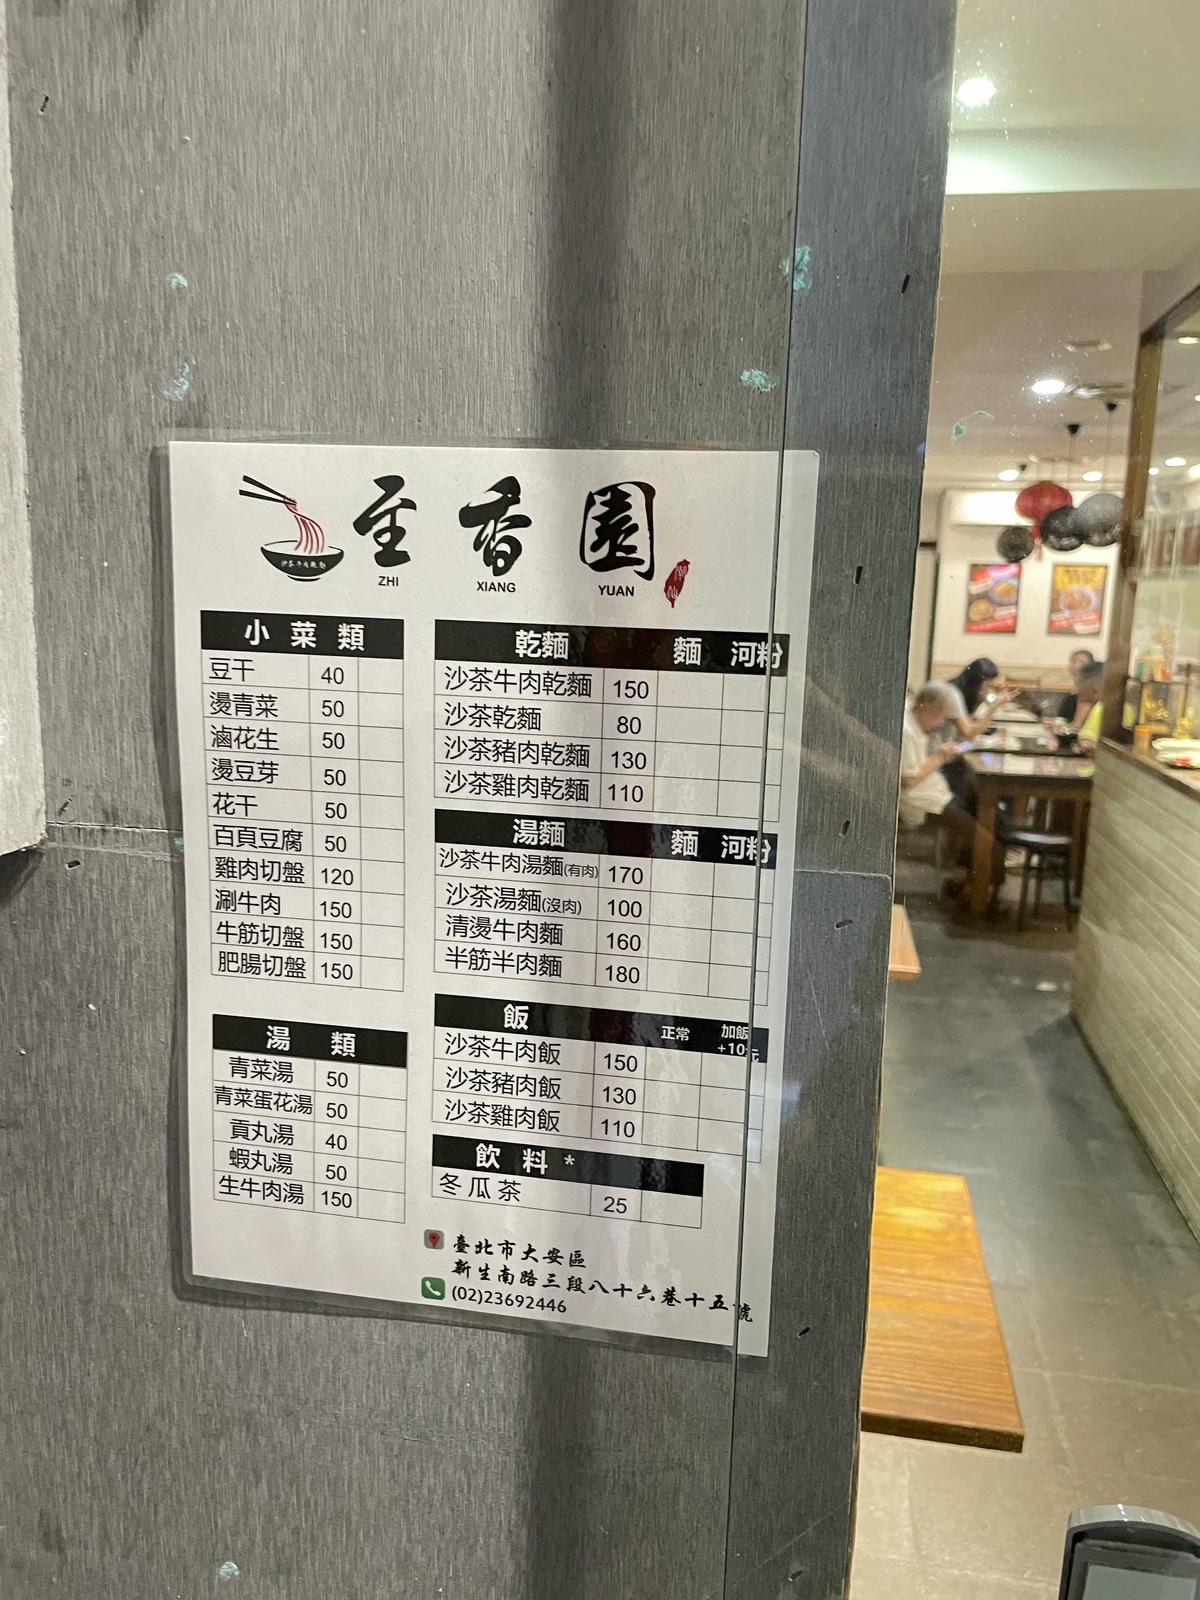 至香園
ZHI XIANG YUAN
沙茶牛肉乾麵
小菜類
豆干 40
燙青菜 50
滷花生 50
燙豆芽 50
花干 50
百頁豆腐 50
雞肉切盤 120
涮牛肉 150
牛筋切盤 150
肥腸切盤 150
湯類
青菜湯 50
青菜蛋花湯 50
貢丸湯 40
蝦丸湯 50
生牛肉湯 150
乾麵 麵 河粉
沙茶牛肉乾麵 150
沙茶乾麵 80
沙茶豬肉乾麵 130
沙茶雞肉乾麵 110
湯麵 麵 河粉
沙茶牛肉湯麵(有肉) 170
沙茶湯麵(沒肉) 100
清燙牛肉麵 160
半筋半肉麵 180
飯 正常 加飯
+10元
沙茶牛肉飯 150
沙茶豬肉飯 130
沙茶雞肉飯 110
飲料*
冬瓜茶 25
臺北市大安區
新生南路三段八十六巷十五號
(02)23692446